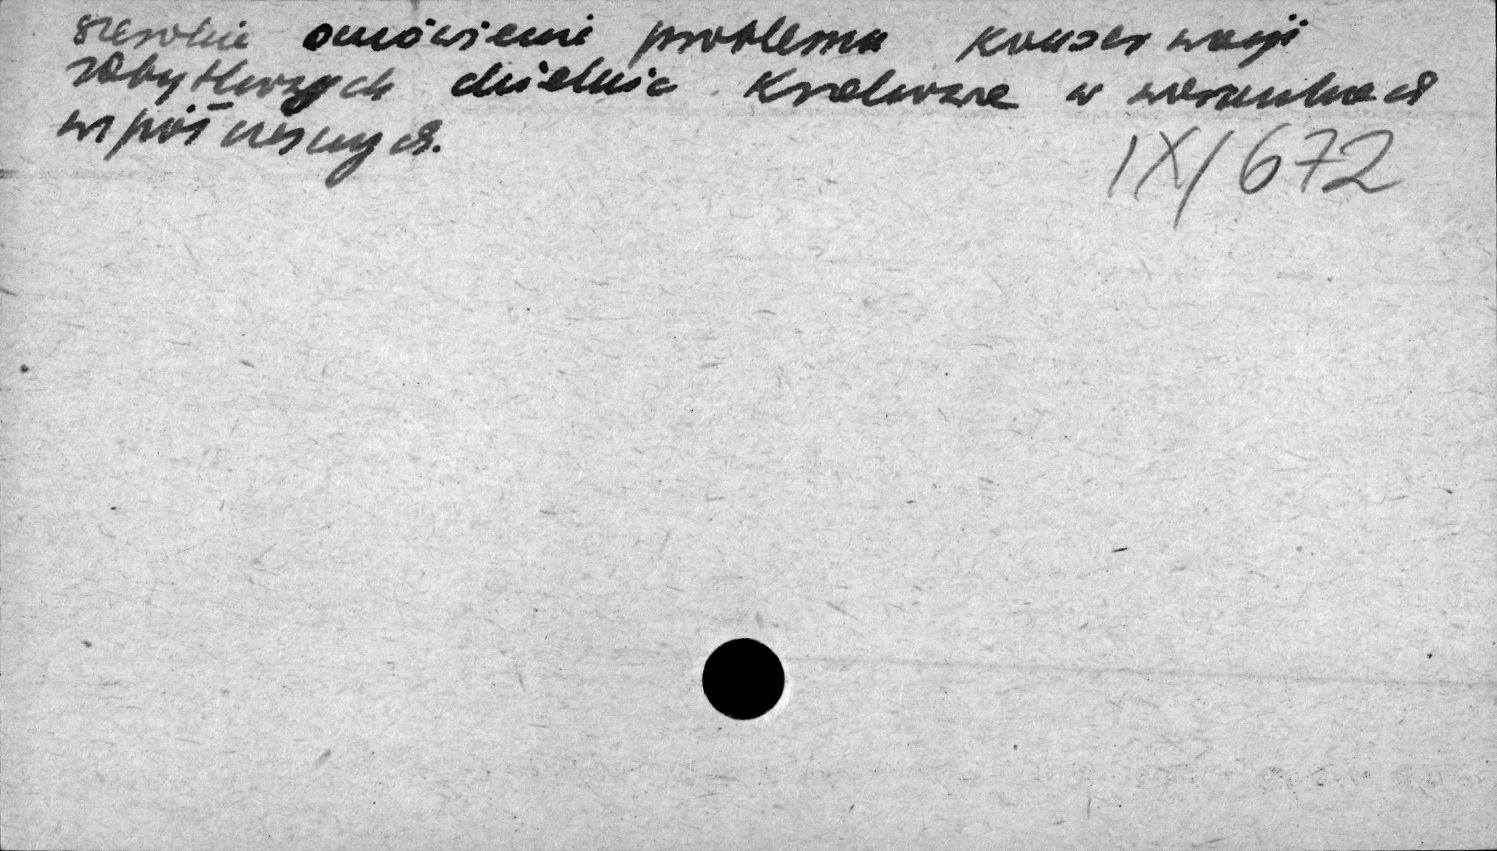 szerokie omówienie problemu konserwacji
zabytkowych dzielnic Krakowa w warunkach
współczesnych.
IX/672